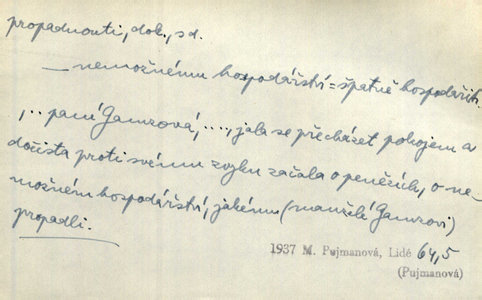 propadnouti, dok., sd.
— nemožnému hospodářství = špatně hospodařiti.
„.. paní Gamzová, ..., jala se přecházet pokojem a
dočista proti svému zvyku začala o penězích, o ne-
možném hospodářství, jakému (manželé Gamzovi)
propadli.
1937 M. Pujmanová, Lidé 64,5
(Pujmanová)